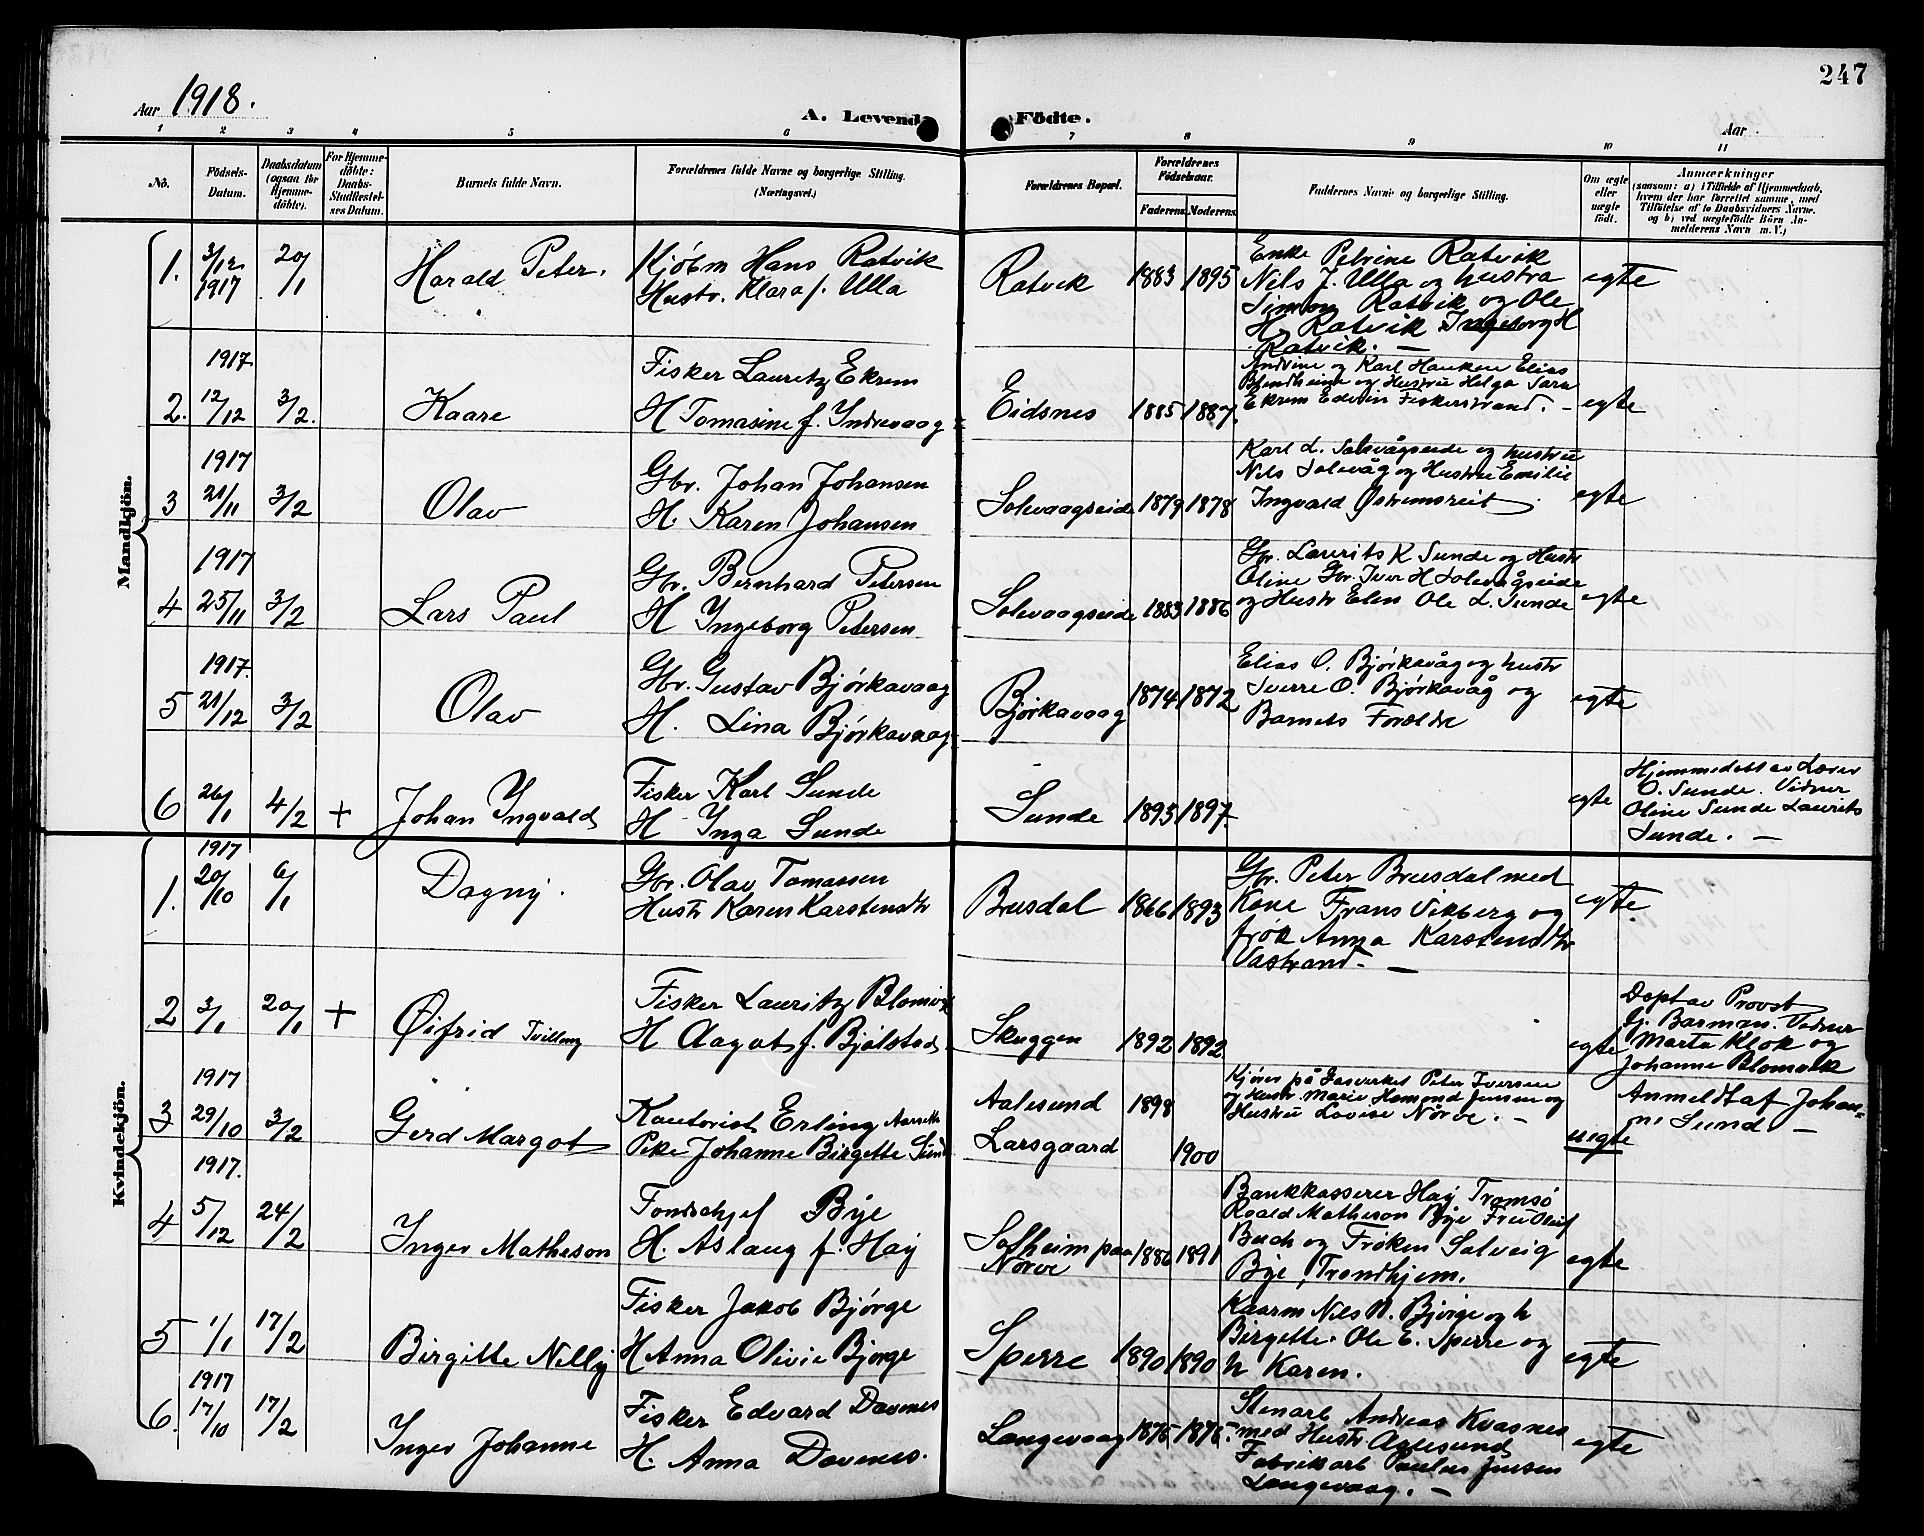 247
Aar 1918.
A. Levende Födte.
Aar
1 2 3 4 5 6 7 8 9 10 11
No.
Födsels-
Datum.
Daabsdatum
(ogsaa for
Hjemme-
döbte).
For Hjemme-
döbte:
Daabs-
Stadfæstel-
ses Datum.
Barnets fulde Navn.
Forældrenes fulde Navne og borgerlige Stilling.
(Næringsvei.)
Forældrenes Bopæl.
Forældrenes
Födselsaar.
Faderens Moderens
Faddernes Navne og borgerlige Stilling.
Om ægte
eller
uægte
født.
Anmærkninger
(saasom: a) i Tilfælde af Hjemmedaab,
hvem der har forrettet samme, med
Tilføielse af to Daabsvidners Navne,
og b) ved uægtefödte Börn An-
melderens Navn m. V.)
Mandkjön.
1. 3/12 1917 20/1 Harald Peter.
Kjöbm Hans Ratvik
Hustr. Klara f. Ulla
Ratvik 1883 1895
Enke Petrine Ratvik
Nils J. Ulla og hustru
Simon Ratvik og Ole
H. Ratvik Ingeborg H
Ratvik. —
egte
1917.
2. 12/12 3/2. Kaare
Fisker Lauritz Ekrem
H Tomasine f. Indrevaag
Eidsnes 1885 1887.
Andrine og Karl Hanken Elias
Blindheim og Hustru Helga Sara
Ekrem Edvin Fiskerstrand. –
egte
1917
3 21/11 3/2 Olav
Gbr. Johan Johansen
H. Karen Johansen
Solevaagseide 1879 1878
Karl L. Solevågseide og hustru
Nils Solevåg og Hustru Emilie
Ingvald Østremsreit
egte
1917
4 25/11 3/2 Lars Paul
Gbr. Bernhard Petersen
H Ingeborg Petersen
Solevaagseide 1883 1886
Gbr. Laurits K Sunde og Hustr
Oline Gbr. Iver H Solevågseide
og Hustr Elen Ole L. Sunde
egte
1917.
5 21/12 3/2 Olav
Gbr. Gustav Bjørkavaag
H. Lina Bjørkavaag
Bjørkavaag 1874 1872
Elias O. Bjørkavåg og hustr
Sverre O. Bjørkavåg og
Barnets Forældre
egte
6 26/1 4/2 + Johan Yngvald
Fisker Karl Sunde
H Inga Sunde
Sunde 1893 1897.
egte
Hjemmedøbt av Lærer
O. Sunde. Vidner
Oline Sunde Laurits
Sunde. —
Kvindekjön.
1917
1. 20/10 6/1 Dagny.
Gbr. Olav Tomassen
Hustr Karen Karstensdtr
Brusdal 1866 1893
Gbr. Peter Brusdal med
Kone Frans Vikberg og
frøk Anna Karstensdtr
Vastrand. —
egte
2 3/1 20/1 + Øifrid Tvilling
Fisker Lauritz Blomvik
H Aagot f. Bjølstad
Skuggen 1892 1892
egte
Døpt av Provst
Gj. Barman. Vidner
Marta Klok og
Johanne Blomvik
1917
3 29/10 3/2 Gerd Margot
Kontorist Erling
Pike Johanne Birgette Sund
Aalesund 1898
Larsgaard 1900
Kjører på Gasverket Peter Iversen
og Hustr Marie Jensen og
Hustru Lovise Nørve. –
uegte
Anmeldt af Johan-
ne Sund. —
1917.
4 5/12 24/2 Inger Matheson
Fondschef Bye
H. Aslaug f. Høy
Solheim paa
Nørve 1886 1891
Bankkasserer Høy Tromsø
Roald Matheson Bye Fru Oluf
Buch og Frøken Solveig
Bye, Trondhjem.
egte
5 1/1 17/2 Birgitte Nelly
Fisker Jakob Bjørge
H Anna Olivie Bjørge
Sperre 1890 1890
Kaarm Nils N. Bjørge og h
Birgitte. Ole E. Sperre og
h Karen.
egte
1917
6. 17/10 17/2 Inger Johanne
Fisker Edvard Davenes
H. Anna Davenes.
Langevaag 1875 1876.
Stenarb Andreas Kvasnes
med Hustr Aalesund
Fabrikarb Paulus Jensen
Langevaag. —
egte